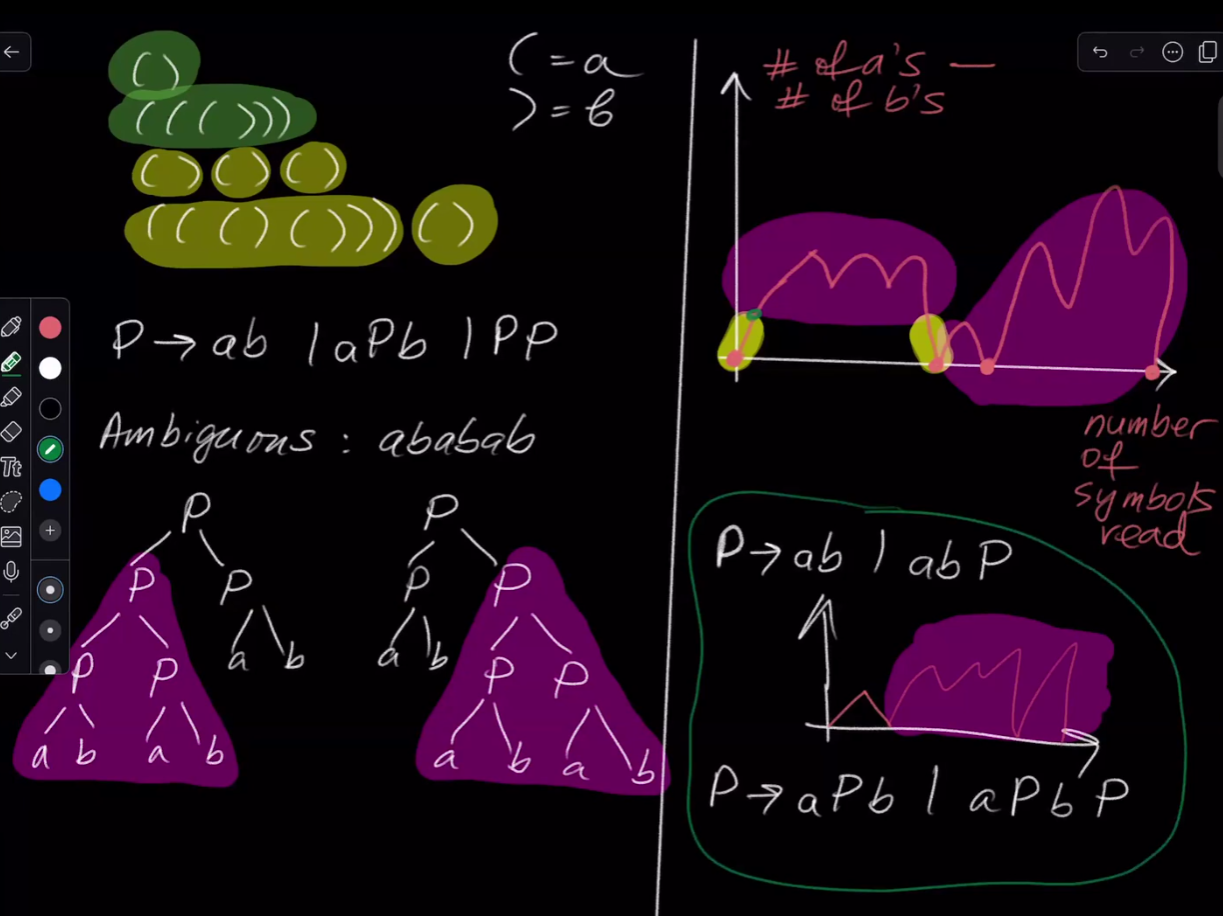 ( )
( ( ( ) ) )
( ) ( ) ( )
( ( ( ) ( ) ) ) ( )
( = a
) = b
P → ab | aPb | PP
Ambiguous : ababab
P
P P
P P a b
a b a b
P
P P
a b P P
a b a b
# of a's —
# of b's
number
of
symbols
read
P → ab | abP
P → aPb | aPbP
Tt